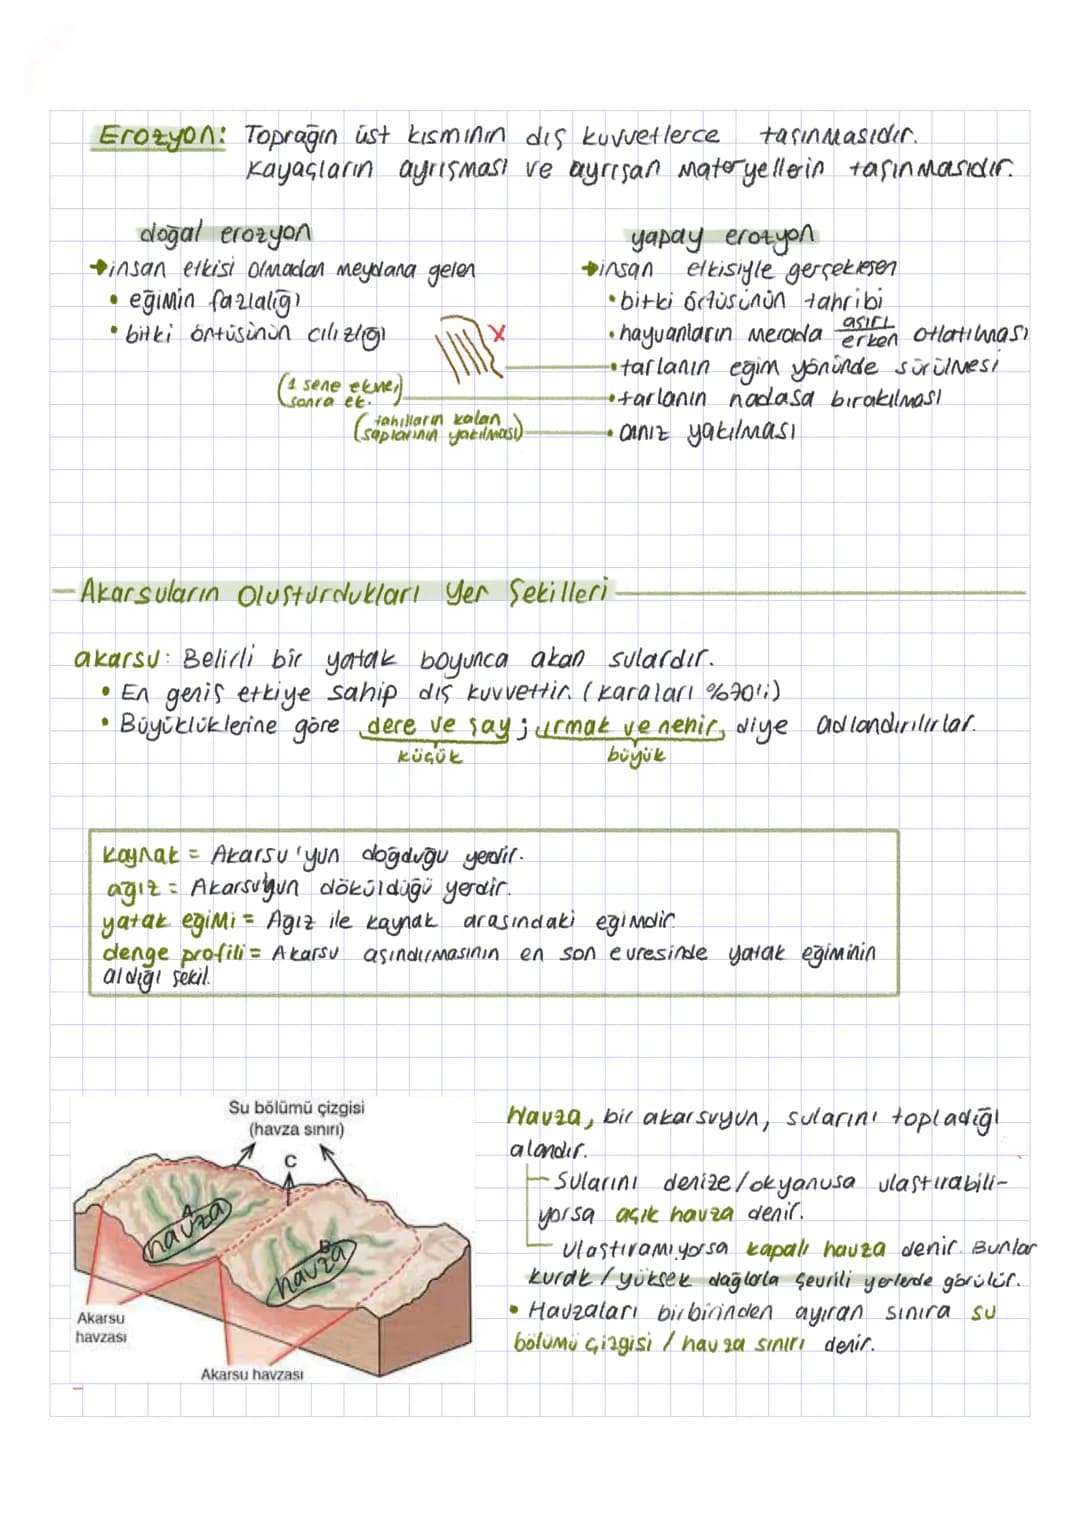 Erozyon: Toprağın üst kısmının dış kuvvetlerce taşınmasıdır.
Kayaçların ayrışması ve ayrışan materyellerin taşınmasıdır.
doğal erozyon
→insan etkisi olmadan meydana gelen
• eğimin fazlalığı
• bitki örtüsünün cılızlığı
yapay erozyon
→insan etkisiyle gerçekleşen
• bitki örtüsünün tahribi
• hayvanların merada aşırı/erken otlatılması
• tarlanın eğim yönünde sürülmesi
• tarlanın nadasa bırakılması
• anız yakılması
X
(1 sene ekme,
sonra ek.)
(tahılların kalan
saplarının yakılması)
Akarsuların Oluşturdukları Yer Şekilleri
akarsu: Belirli bir yatak boyunca akan sulardır.
• En geniş etkiye sahip dış kuvvettir. (karaları %70'i)
• Büyüklüklerine göre dere ve çay; ırmak ve nehir, diye adlandırılırlar.
küçük büyük
Kaynak = Akarsu'yun doğduğu yerdir.
ağız = Akarsuyun döküldüğü yerdir.
yatak eğimi = Ağız ile kaynak arasındaki eğimdir.
denge profili = Akarsu aşındırmasının en son evresinde yatak eğiminin
aldığı şekil.
Su bölümü çizgisi
(havza sınırı)
C
A
havza
B
havza
Akarsu
havzası
Akarsu havzası
Havza, bir akarsuyun, sularını topladığı
alandır.
Sularını denize/okyanusa ulaştırabili-
yorsa açık havza denir.
Ulaştıramıyorsa kapalı havza denir. Bunlar
kurak / yüksek dağlarla çevrili yerlerde görülür.
• Havzaları birbirinden ayıran sınıra su
bölümü çizgisi / havza sınırı denir.